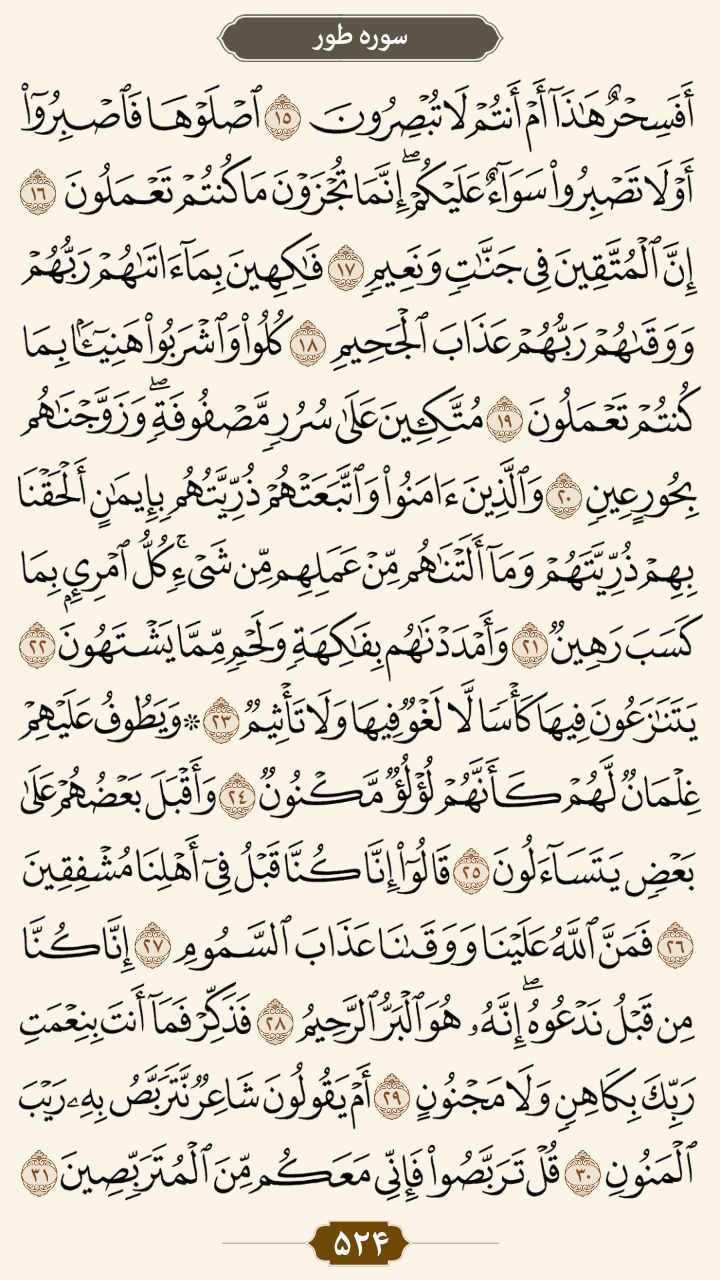 سوره طور
أَفَسِحْرٌ هَٰذَآ أَمْ أَنتُمْ لَا تُبْصِرُونَ ١٥ ٱصْلَوْهَا فَٱصْبِرُوٓا۟
أَوْ لَا تَصْبِرُوا۟ سَوَآءٌ عَلَيْكُمْ ۖ إِنَّمَا تُجْزَوْنَ مَا كُنتُمْ تَعْمَلُونَ ١٦
إِنَّ ٱلْمُتَّقِينَ فِى جَنَّٰتٍ وَنَعِيمٍ ١٧ فَٰكِهِينَ بِمَآ ءَاتَىٰهُمْ رَبُّهُمْ
وَوَقَىٰهُمْ رَبُّهُمْ عَذَابَ ٱلْجَحِيمِ ١٨ كُلُوا۟ وَٱشْرَبُوا۟ هَنِيٓـًٔۢا بِمَا
كُنتُمْ تَعْمَلُونَ ١٩ مُتَّكِـِٔينَ عَلَىٰ سُرُرٍ مَّصْفُوفَةٍ ۖ وَزَوَّجْنَٰهُم
بِحُورٍ عِينٍ ٢٠ وَٱلَّذِينَ ءَامَنُوا۟ وَٱتَّبَعَتْهُمْ ذُرِّيَّتُهُم بِإِيمَٰنٍ أَلْحَقْنَا
بِهِمْ ذُرِّيَّتَهُمْ وَمَآ أَلَتْنَٰهُم مِّنْ عَمَلِهِم مِّن شَىْءٍ ۚ كُلُّ ٱمْرِئٍۭ بِمَا
كَسَبَ رَهِينٌ ٢١ وَأَمْدَدْنَٰهُم بِفَٰكِهَةٍ وَلَحْمٍ مِّمَّا يَشْتَهُونَ ٢٢
يَتَنَٰزَعُونَ فِيهَا كَأْسًا لَّا لَغْوٌ فِيهَا وَلَا تَأْثِيمٌ ٢٣ ۞ وَيَطُوفُ عَلَيْهِمْ
غِلْمَانٌ لَّهُمْ كَأَنَّهُمْ لُؤْلُؤٌ مَّكْنُونٌ ٢٤ وَأَقْبَلَ بَعْضُهُمْ عَلَىٰ
بَعْضٍ يَتَسَآءَلُونَ ٢٥ قَالُوٓا۟ إِنَّا كُنَّا قَبْلُ فِىٓ أَهْلِنَا مُشْفِقِينَ
٢٦ فَمَنَّ ٱللَّهُ عَلَيْنَا وَوَقَىٰنَا عَذَابَ ٱلسَّمُومِ ٢٧ إِنَّا كُنَّا
مِن قَبْلُ نَدْعُوهُ ۖ إِنَّهُۥ هُوَ ٱلْبَرُّ ٱلرَّحِيمُ ٢٨ فَذَكِّرْ فَمَآ أَنتَ بِنِعْمَتِ
رَبِّكَ بِكَاهِنٍ وَلَا مَجْنُونٍ ٢٩ أَمْ يَقُولُونَ شَاعِرٌ نَّتَرَبَّصُ بِهِۦ رَيْبَ
ٱلْمَنُونِ ٣٠ قُلْ تَرَبَّصُوا۟ فَإِنِّى مَعَكُم مِّنَ ٱلْمُتَرَبِّصِينَ ٣١
۵۲۴